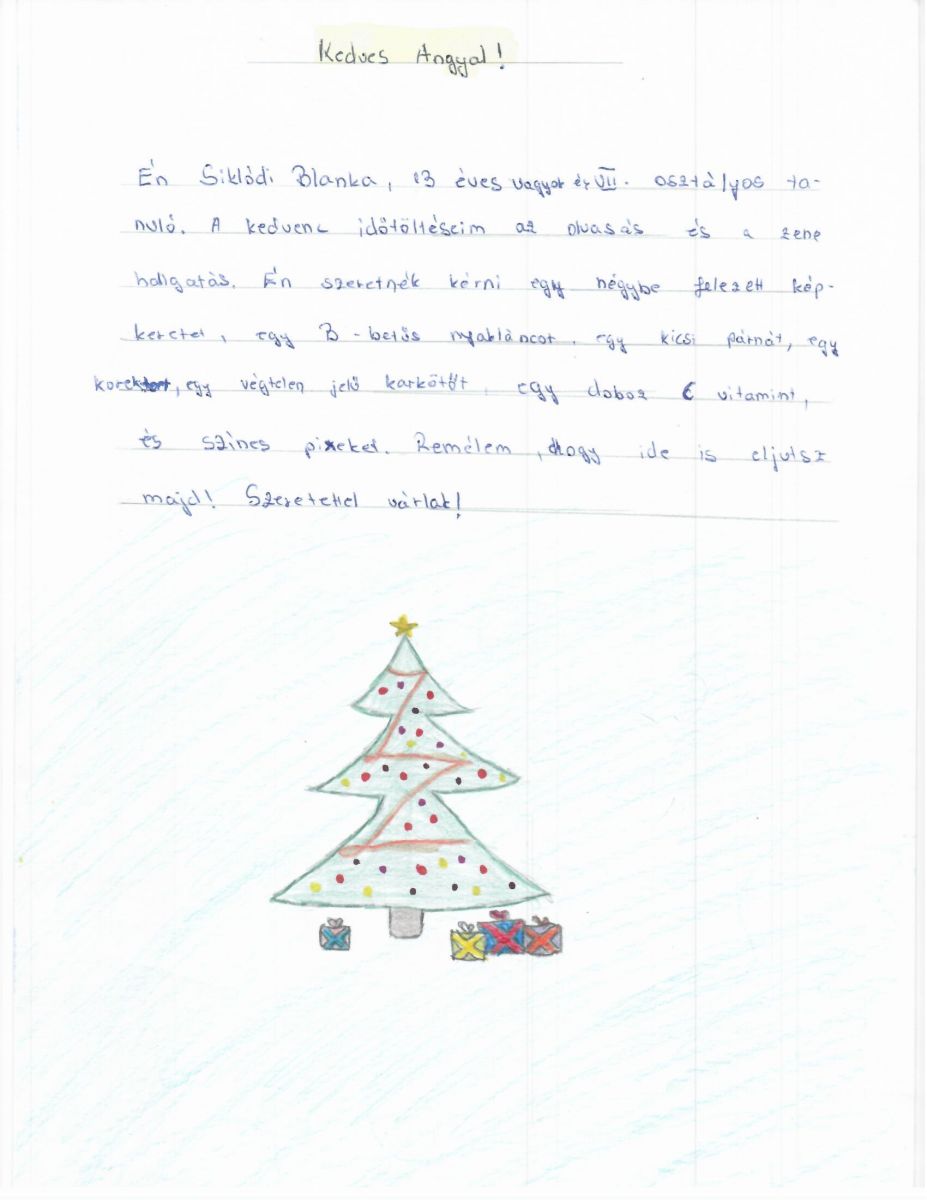 Kedves Angyal!
Én Siklódi Blanka, 13 éves vagyok és VII. osztályos ta-
nuló. A kedvenc időtöltéseim az olvasás és a zene
halgatás. Én szeretnék kérni egy négybe felezett kép-
keretet, egy B-betűs nyakláncot, egy kicsi párnát, egy
korektort, egy végtelen jelű karkötőt, egy doboz C vitamint,
és színes pixeket. Remélem, hogy ide is eljutsz
majd! Szeretettel várlak!